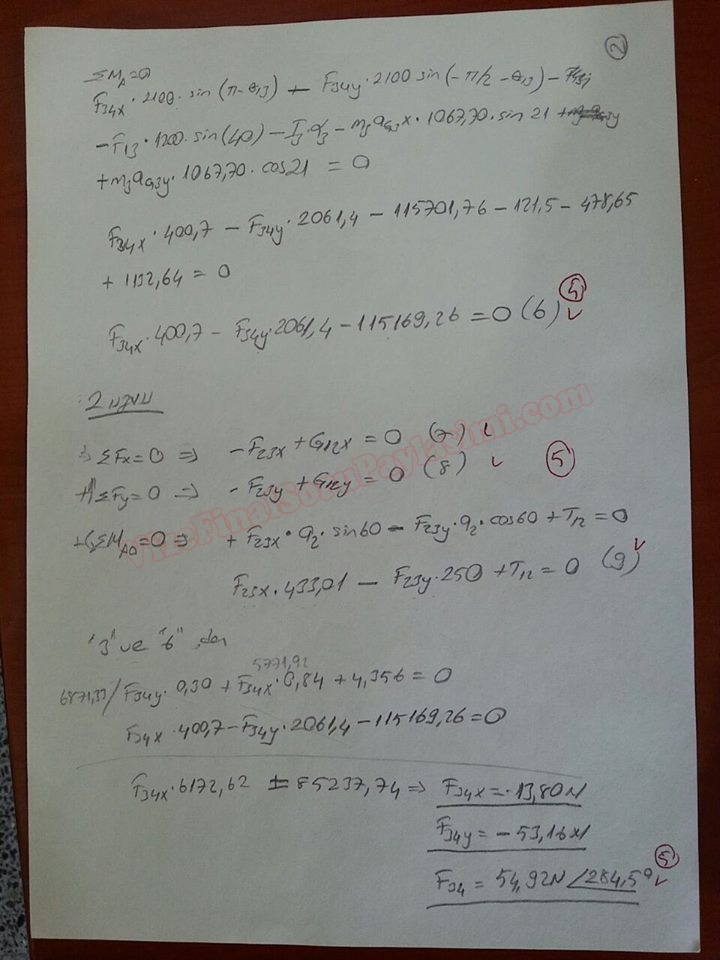 2
ΣM_A=0
F34x·2100·sin(π-θ13) + F34y·2100 sin(-π/2-θ13) -
-F13·1200·sin(40) - I3·α3 - m3aG3x·1067,70·sin21
+m3aG3y·1067,70·cos21 = 0
F34x·400,7 - F34y·2061,4 - 115701,76 - 121,5 - 478,65
+ 1132,64 = 0
F34x·400,7 - F34y·2061,4 - 115169,26 = 0 (6)
2 uzvu
ΣFx=0 ⇒ -F23x + G12x = 0 (7)
5
+↑ΣFy=0 ⇒ -F23y + G12y = 0 (8)
ΣM_A0=0 ⇒ +F23x·a2·sin60 - F23y·a2·cos60 + T12 = 0
F23x·433,01 - F23y·250 + T12 = 0 (9)
"3" ve "6" dan
5771,92
6871,33/ F34y·0,30 + F34x·0,84 + 4,356 = 0
F34x·400,7 - F34y·2061,4 - 115169,26 = 0
F34x·6172,62 = 85237,74 ⇒ F34x = 13,80N
F34y = -53,16N
5
F34 = 54,92N ∠284,5°
VizeFinalSoruPaylasimi.com